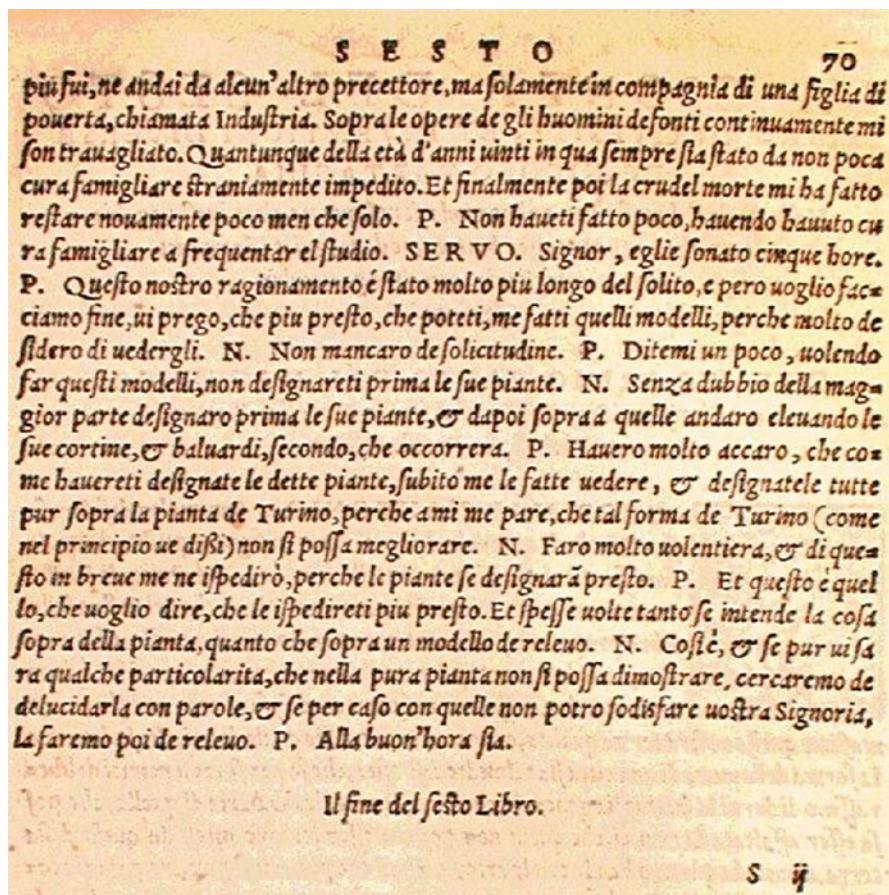 SESTO 70
piu fui, ne andai da alcun'altro precettore, ma solamente in compagnia di una figlia di
pouerta, chiamata Industria. Sopra le opere de gli huomini defonti continuamente mi
son trauagliato. Quantunque della età d'anni uinti in qua sempre sia stato da non poca
cura famigliare straniamente impedito. Et finalmente poi la crudel morte mi ha fatto
restare nouamente poco men che solo. P. Non haueti fatto poco, hauendo hauuto cu
ra famigliare a frequentar el studio. SERVO. Signor, eglie sonato cinque hore.
P. Questo nostro ragionamento é stato molto piu longo del solito, e pero uoglio fac=
ciamo fine, ùi prego, che piu presto, che poteti, me fatti quelli modelli, perche molto de
sidero di uedergli. N. Non mancaro de solicitudine. P. Ditemi un poco, uolendo
far questi modelli, non designareti prima le sue piante. N. Senza dubbio della mag=
gior parte designaro prima le sue piante, & dapoi sopra a quelle andaro eleuando le
sue cortine, & baluardi, secondo, che occorrera. P. Hauero molto accaro, che co=
me hauereti designate le dette piante, subito me le fatte uedere, & designatele tutte
pur sopra la pianta de Turino, perche a mi me pare, che tal forma de Turino (come
nel principio ue dißi) non si possa megliorare. N. Faro molto uolentiera, & di que=
sto in breue me ne ispedirò, perche le piante se designarã presto. P. Et questo è quel
lo, che uoglio dire, che le ispedireti piu presto. Et spesse uolte tanto se intende la cosa
sopra della pianta, quanto che sopra un modello de releuo. N. Cosi é, & se pur ui sa
ra qualche particolarita, che nella pura pianta non si possa dimostrare, cercaremo de
delucidarla con parole, & se per caso con quelle non potro sodisfare uostra Signoria,
la faremo poi de releuo. P. Alla buon'hora sia.
Il fine del sesto Libro.
S ij